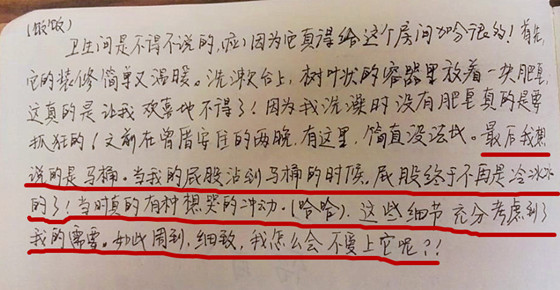 (饭饭)
卫生间是不得不说的,应)因为它真得给这个房间加分很多!首先,
它的装修简单又温暖。洗漱台上,树叶状的容器里放着一块肥皂,
这真的是让我欢喜地不得了!因为我洗澡时没有肥皂真的是要
抓狂的(之前在曾厝安住的两晚,有这里,简直没法找。最后我想
说的是马桶。当我的屁股沾到马桶的时候,屁股终于不再是冷冰冰
的了!当时真的有种想哭的冲动。(哈哈)。这些细节充分考虑到了
我的需要。如此周到,细致,我怎么会不爱上它呢?!